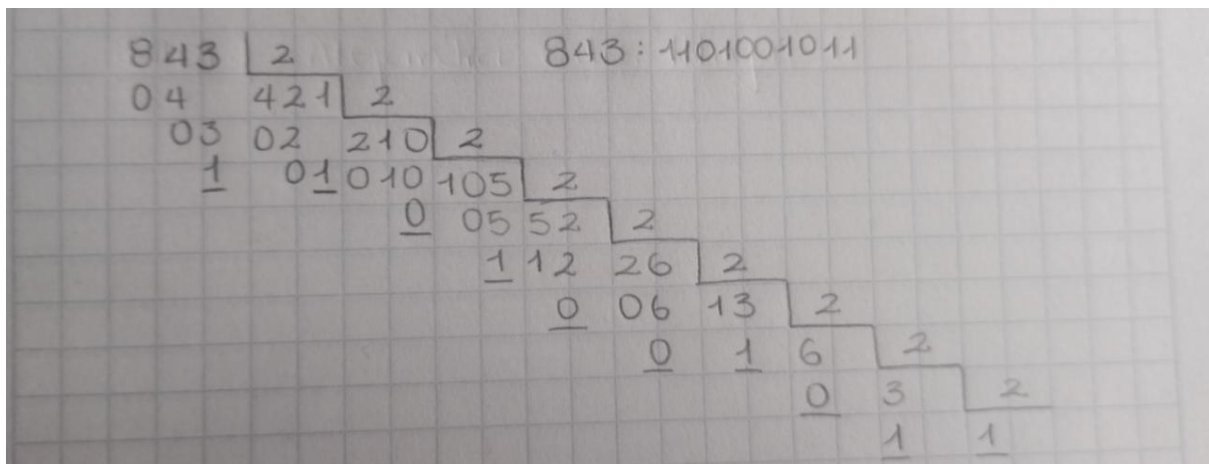 843 2 843: 1101001011
04 421 2
03 02 210 2
1 01 010 105 2
0 05 52 2
1 12 26 2
0 06 13 2
0 1 6 2
0 3 2
1 1